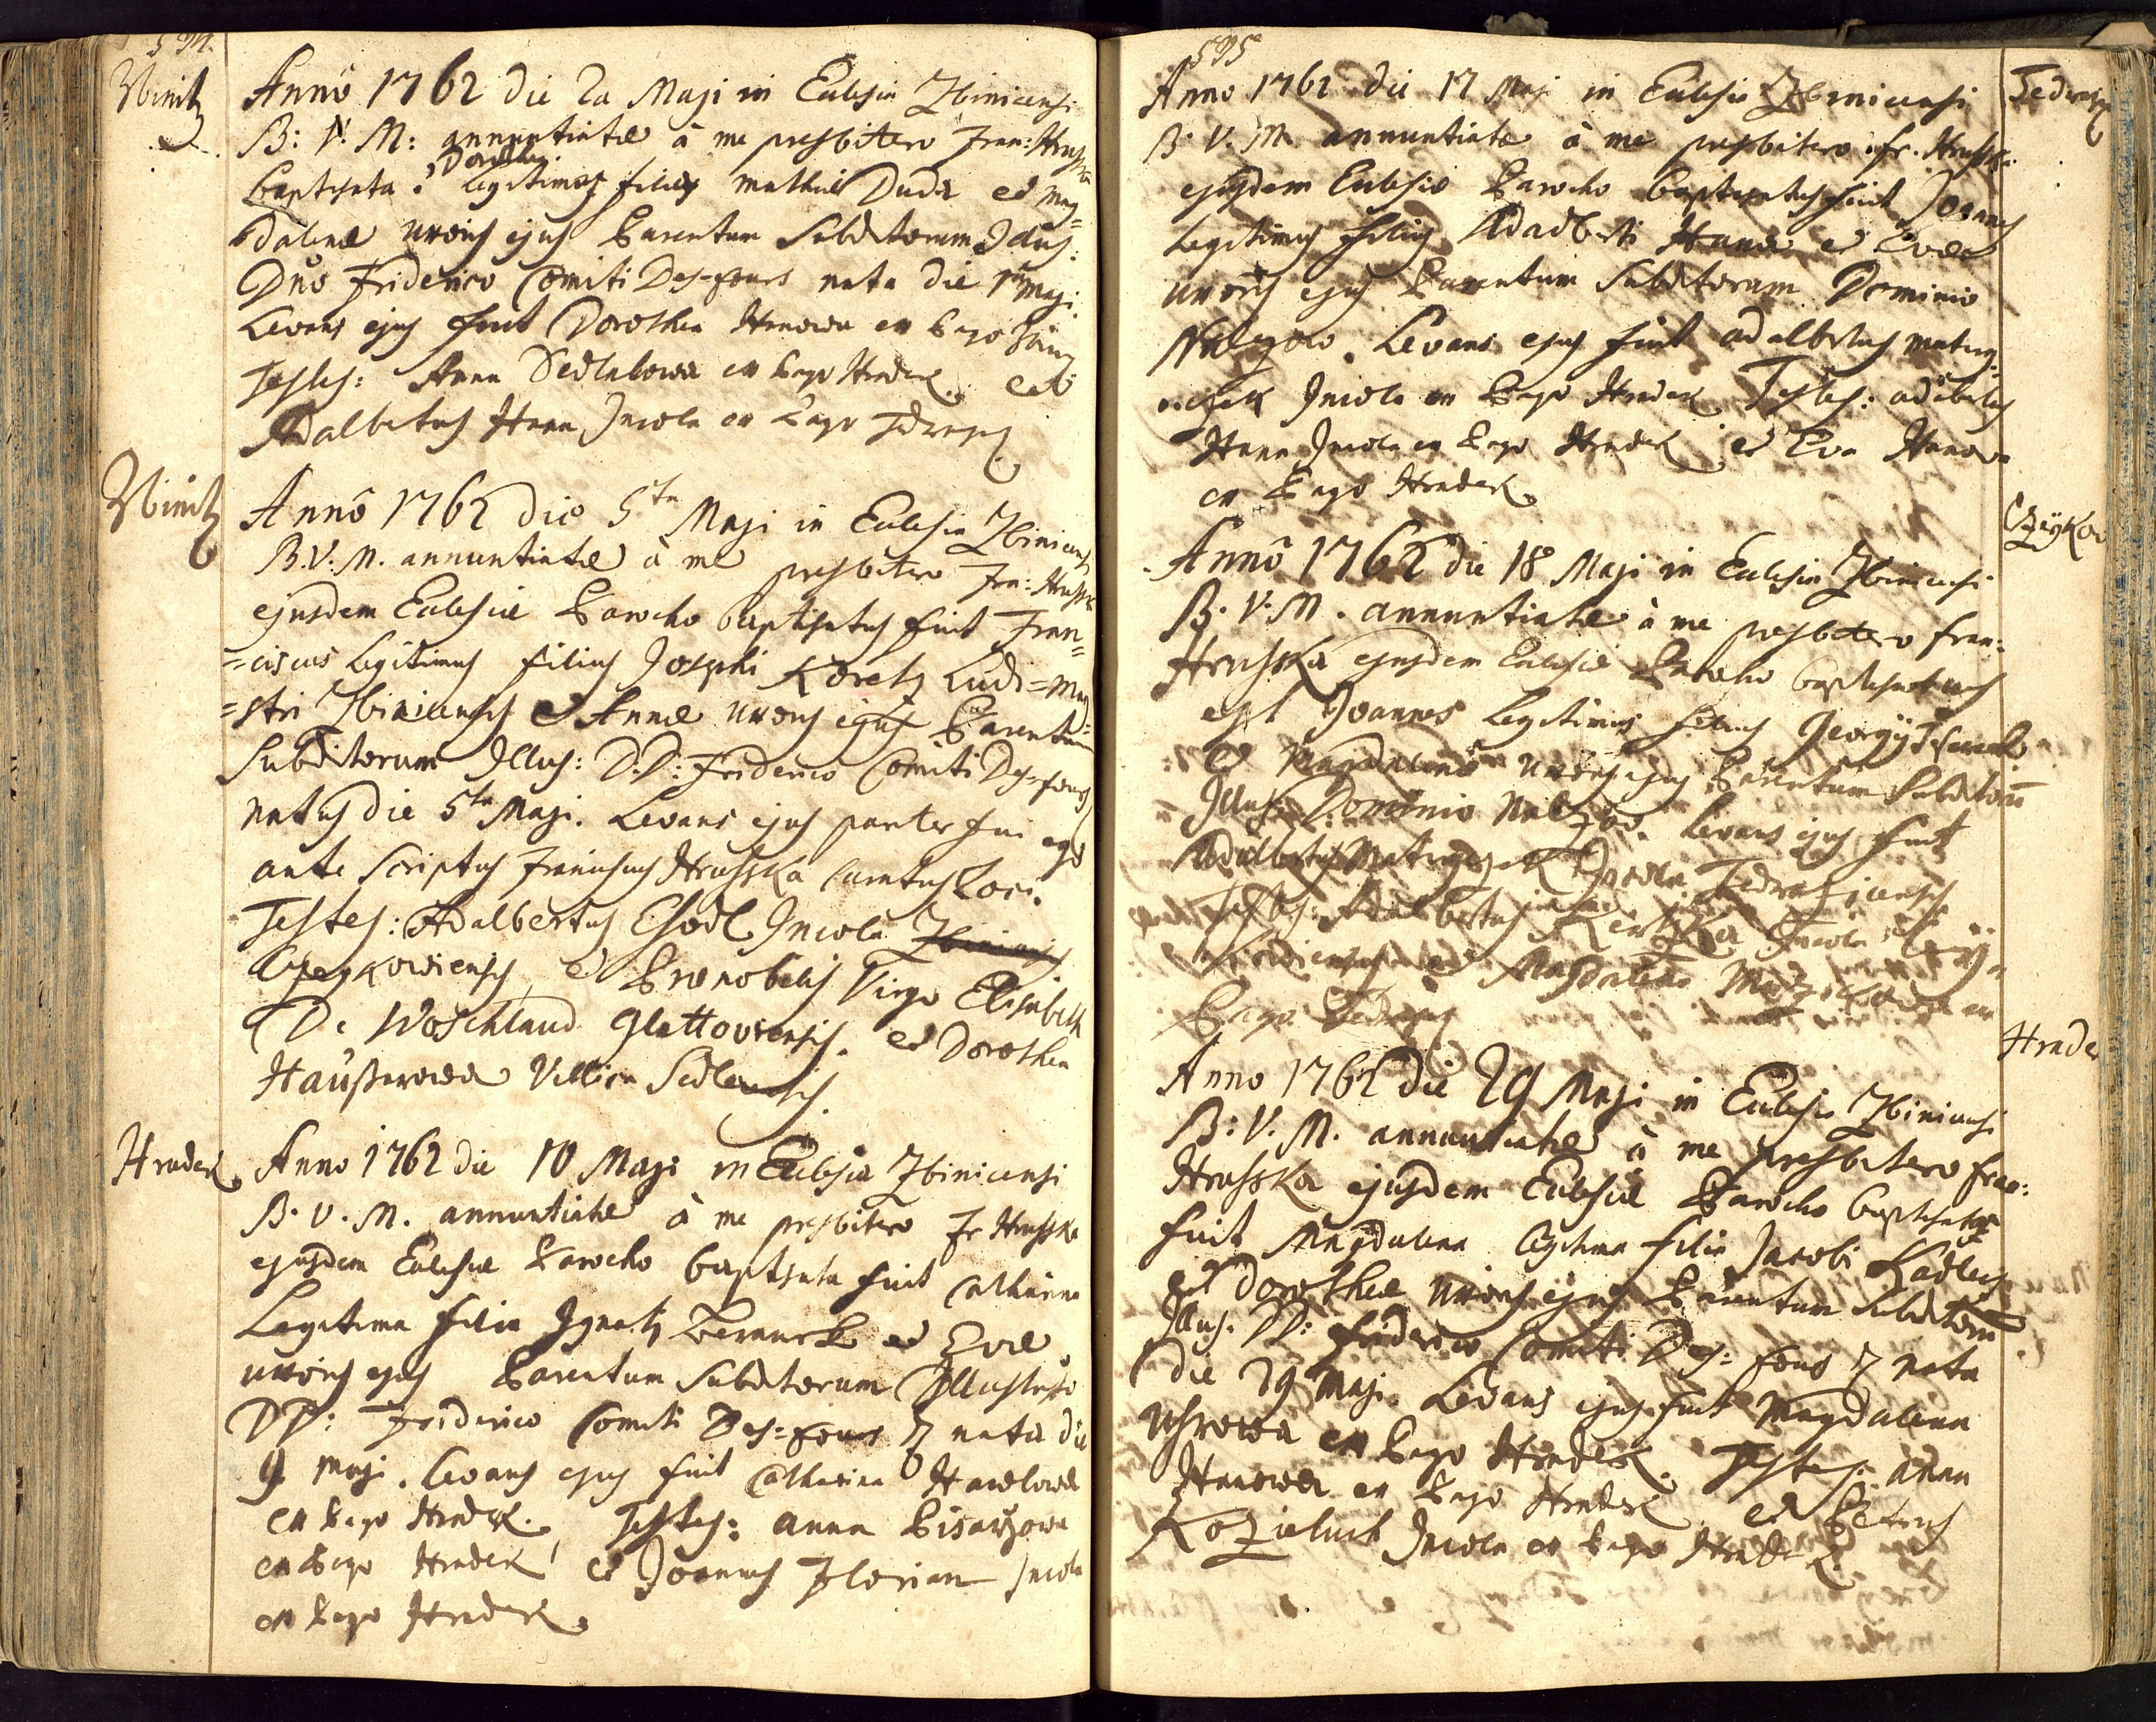 Zbinitz
Anno 1762 die 2a Maji in Eclesia Zbinicensi
B: V: M: annuntiatæ à me presbitero Fran: Hrusska
Baptisata e Dorothea legitima filia Mathiæ Duda et Mag=
dalenæ uxoris ejus Parentum Subditorum Illus:
Dno Friderico Comiti Des-fours nata die 1ma Maji
Levans ejus fuit Dorothea Hanowa ex Pago
Testes: Anna Sedlakowa ex Pago Hradek et
Adalbertus Hana Incola ex Pago
Zbinitz
Anno 1762 die 5ta Maji in Eclesia Zbinicensi
B.V.M. annuntiatæ à me presbitero Fran: Hrusska
ejusdem Eclesiæ Parocho baptisatus fuit Fran=
=ciscus Legitimus filius Josephi Koretz Ludi=magi
=stri Zbinicensis et Annæ uxoris ejus Parentum
Subditorum Illus: D:D: Friderico Comiti Des-fours
natus die 5ta Maji. Levans ejus pariter fui ego
ante Scriptus Franciscus Hrusska Curatus Loci.
Testes: Adalbertus Chodl Incola Zbinicensis
Czeykowiensis, et Prænobilis Virgo Elisabeth
De Woschland Glattoviensis. et Dorothea
Haüßerowa Villica
Hradek
Anno 1762 die 10 Maji in Eclesia Zbinicensi
B. V. M. annuntiatæ à me presbitero Fr Hrusska
ejusdem Eclesiæ Parocho baptisata fuit Catharina
Legitima filia Ignatz et Evæ
uxoris ejus Parentum Subditorum Illustrisso
DD: Friderico Comiti Des=fours nata die
9 Maji. Levans ejus fuit Catharina Hawlowa
ex Pago Hradek. Testes: Anna Pisarzowa
ex Pago Hradek, et Joannes Florian Incola
ex Pago Hradek.
595
Anno 1762 die 17 Maji in Eclesia Zbinicensi
B. V. M. annuntiatæ à me presbitero Fr. Hrusska
ejusdem Eclesiæ Parocho baptisatus fuit Joannes
Legitimus filius Adalberti Hana et Evæ
uxoris ejus Parentum Subditorum Dominio
Nalzow. Levans ejus fuit Adalbertus Matieg=
=czek Incola ex Pago Hradek Testes: Adalbertus
Hana Incola ex Pago Hradek et Eva Hanowa
ex Pago Hradek.
Czeykow
Anno 1762 die 18 Maji in Eclesia Zbinicensi
B. V. M. annuntiatæ à me presbitero Fran:
Hrusska ejusdem Eclesiæ Parocho baptisatus
est Joannes Legitimus filius Georgÿ
et Magdalenæ uxoris ejus Parentum Subditorum
Illus: Dominio Nalzow. Levans ejus fuit
Adalbertus Incola
Testes: Adalbertus Incola Czey=
kowiensis et Magdalena ex
Pago
Hradek
Anno 1762 die 29 Maji in Eclesia Zbinicensi
B: V. M. annuntiatæ à me presbitero Fran:
Hrusska ejusdem Eclesiæ Parocho baptisata
fuit Magdalena legitima filia Jacobi Kadlecz
et Dorotheæ uxoris ejus Parentum Subditorum
Illus. DD: Friderico Comiti Des=fours nata
die 29 Maji. Levans ejus fuit Magdalena
Uhrowa ex Pago Hradek. Testes: Anna
Hanowa ex Pago Hradek et Petrus
Kozieluch Incola ex Pago Hradek.